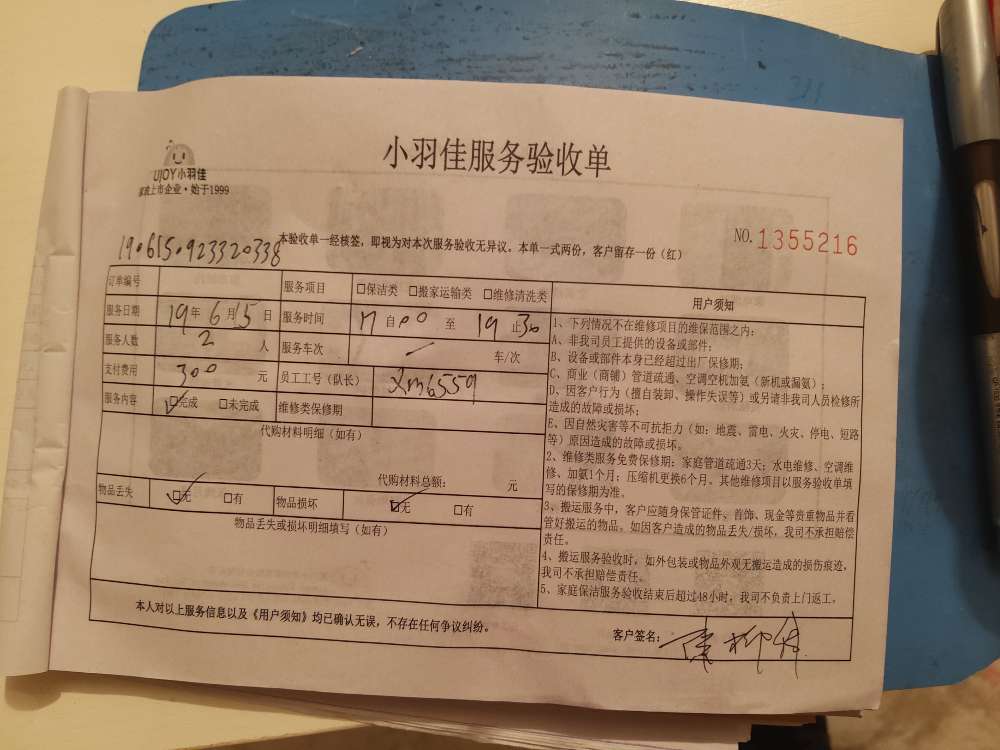 小羽佳服务验收单
UJOY小羽佳
家政上市企业·始于1999
1906150923320338
本验收单一经核签，即视为对本次服务验收无异议。本单一式两份，客户留存一份（红）
NO.1355216
订单编号 服务项目 □保洁类 □搬家运输类 □维修清洗类
服务日期 19年6月15日 服务时间 17自00至19止30
服务人数 2人 服务车次 车/次
支付费用 300元 员工工号（队长） Xm6559
服务内容 □完成 □未完成 维修类保修期
代购材料明细（如有）
代购材料总额： 元
物品丢失 □无 □有 物品损坏 □无 □有
物品丢失或损坏明细填写（如有）
用户须知
1、下列情况不在维修项目的维保范围之内：
A、非我司员工提供的设备或部件；
B、设备或部件本身已经超过出厂保修期；
C、商业（商铺）管道疏通、空调空机加氨（新机或漏氨）；
D、因客户行为（擅自装卸、操作失误等）或另请非我司人员检修所
造成的故障或损坏；
E、因自然灾害等不可抗拒力（如：地震、雷电、火灾、停电、短路
等）原因造成的故障或损坏。
2、维修类服务免费保修期：家庭管道疏通3天；水电维修、空调维
修、加氨1个月；压缩机更换6个月。其他维修项目以服务验收单填
写的保修期为准。
3、搬运服务中，客户应随身保管证件、首饰、现金等贵重物品并看
管好搬运的物品。如因客户造成的物品丢失/损坏，我司不承担赔偿
责任。
4、搬运服务验收时，如外包装或物品外观无搬运造成的损伤痕迹，
我司不承担赔偿责任。
5、家庭保洁服务验收结束后超过48小时，我司不负责上门返工，
本人对以上服务信息以及《用户须知》均已确认无误，不存在任何争议纠纷。
客户签名：